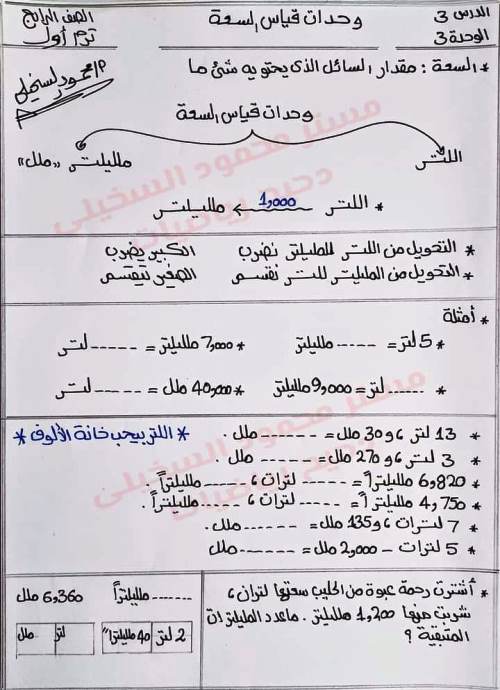 الدرس 3
الوحدة 3
وحدات قياس السعة
الصف الرابع
ترم أول
* السعة : مقدار السائل الذى يحتويه شئ ما
م/محمود السخيلى
وحدات قياس السعة
اللتر
ملليلتر «ملل»
* اللتر 1,000 ملليلتر
* التحويل من اللتر للملليلتر نضرب الكبير يضرب
* التحويل من الملليلتر للتر نقسم الصغير يتقسم
* أمثلة
* 5 لتر = ----- ملليلتر
* 7,000 ملليلتر = ----- لتر
* ------ لتر = 9,000 ملليلتر
* 40,000 ملل = ----- لتر
* اللتر بيحب خانة الألوف *
* 13 لتر ، و 30 ملل = ------ ملل .
* 3 لتر ، و 270 ملل = ------ ملل .
* 6,820 ملليلتراً = ------ لترات ، ------ ملليلتراً .
* 4,750 ملليلتراً = ------ لترات ، ------ ملليلتراً .
* 7 لترات ، و 135 ملل = ------ ملل .
* 5 لترات - 2,000 ملل = ------ ملل
* أشترت رحمة عبوة من الحليب سعتها لتران ،
شربت منها 1,200 ملليلتر . ماعدد الملليلترات
المتبقية ؟
------ ملليلتراً
6,360 ملل
2 لتر
40 ملليلتراً
لتر
ملل
مستر محمود السخيلى
دحيح رياضيات
مستر محمود السخيلى
دحيح رياضيات